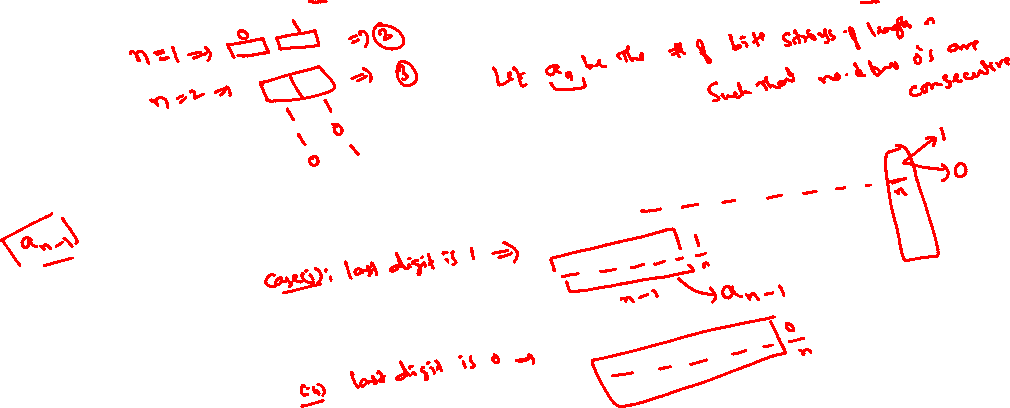 n=1 ⇒ 0 1 ⇒ 2
n=2 → ⇒ 3
1 1
1 0
0 1
Let aₙ be the # of bit strings of length n
Such that no two 0's are
consecutive
1
0
n
aₙ₋₁
Case(i): last digit is 1 ⇒ 1
n
n-1 → aₙ₋₁
(ii) last digit is 0 → 0
n